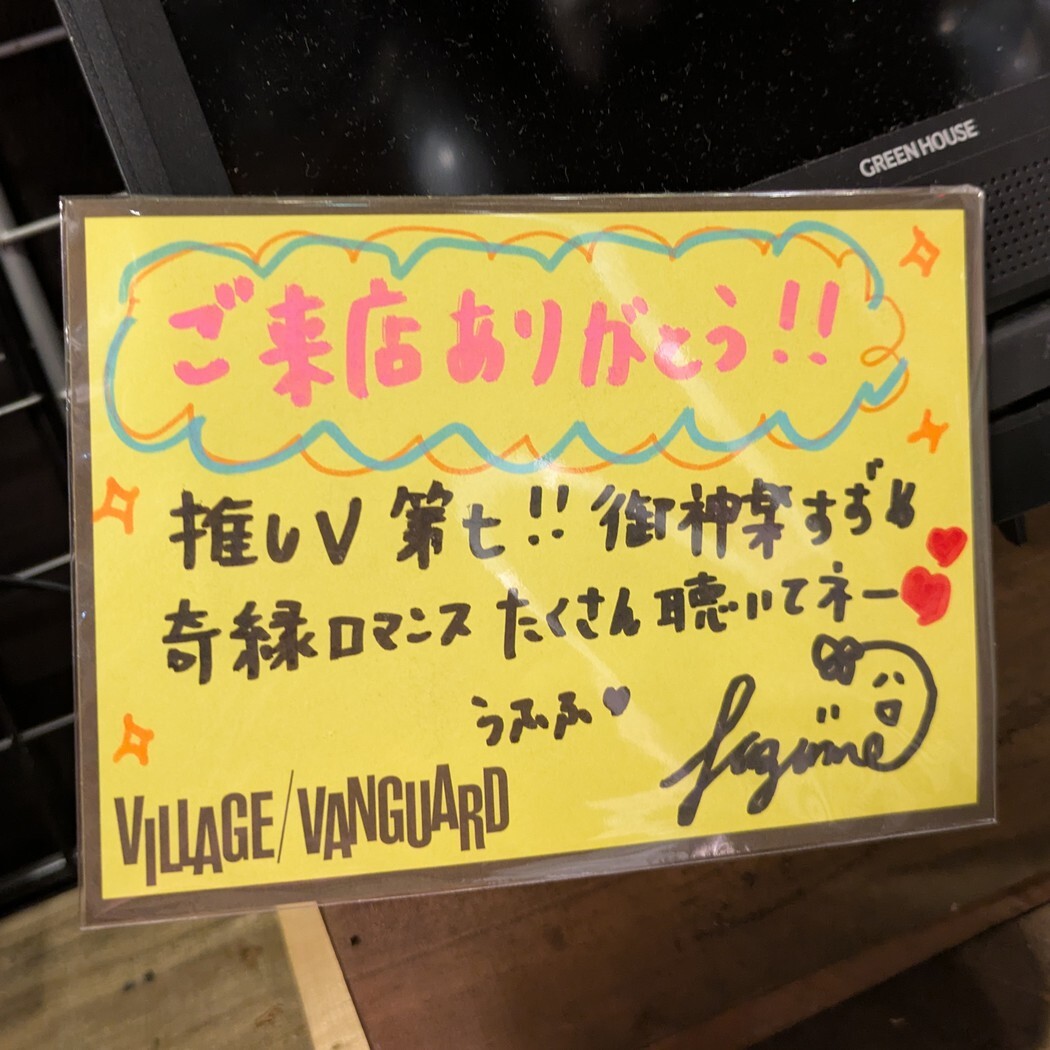 GREEN HOUSE
ご来店ありがとう!!
推しV 第七!! 御神楽すずの
奇縁ロマンス たくさん聴いてネー♥♥
うふふ♥
VILLAGE/VANGUARD